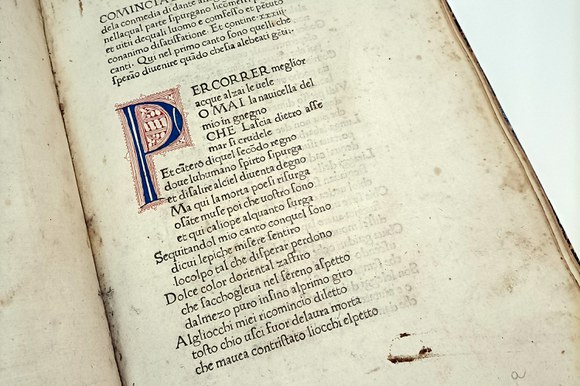 COMINCIA
della comedia di dante
nellaqual parte sipurgano li
et uitii dequali luomo e confesso et pẽtuto
conanimo disatisfatione. Et contine .xxxiii.
canti. Qui nel primo canto sono quelli che
sperão diuenire quãdo chesia alebeati gẽti.
PERCORRER meglior
acque alzai le uele
OMAI la nauicella del
mio in gnegno
CHE Lascia dietro asse
mar si crudele
Et cãtero diquel secõdo regno
doue luhumano spirto sipurga
et disalire alciel diuenta degno
Ma qui la morta poesi risurga
o sãte muse poi che uostro sono
et qui caliope alquanto surga
Sequitando il mio canto con quel sono
dicui lepiche misere sentiro
locolpo tal che disperar perdono
Dolce color doriental zaffiro
che sacchoglieua nel sereno aspetto
dalmezo puro insino alprimo giro
Algliocchi miei ricomincio diletto
tosto chio usci fuor delaura morta
che mauea contristato liocchi elpetto